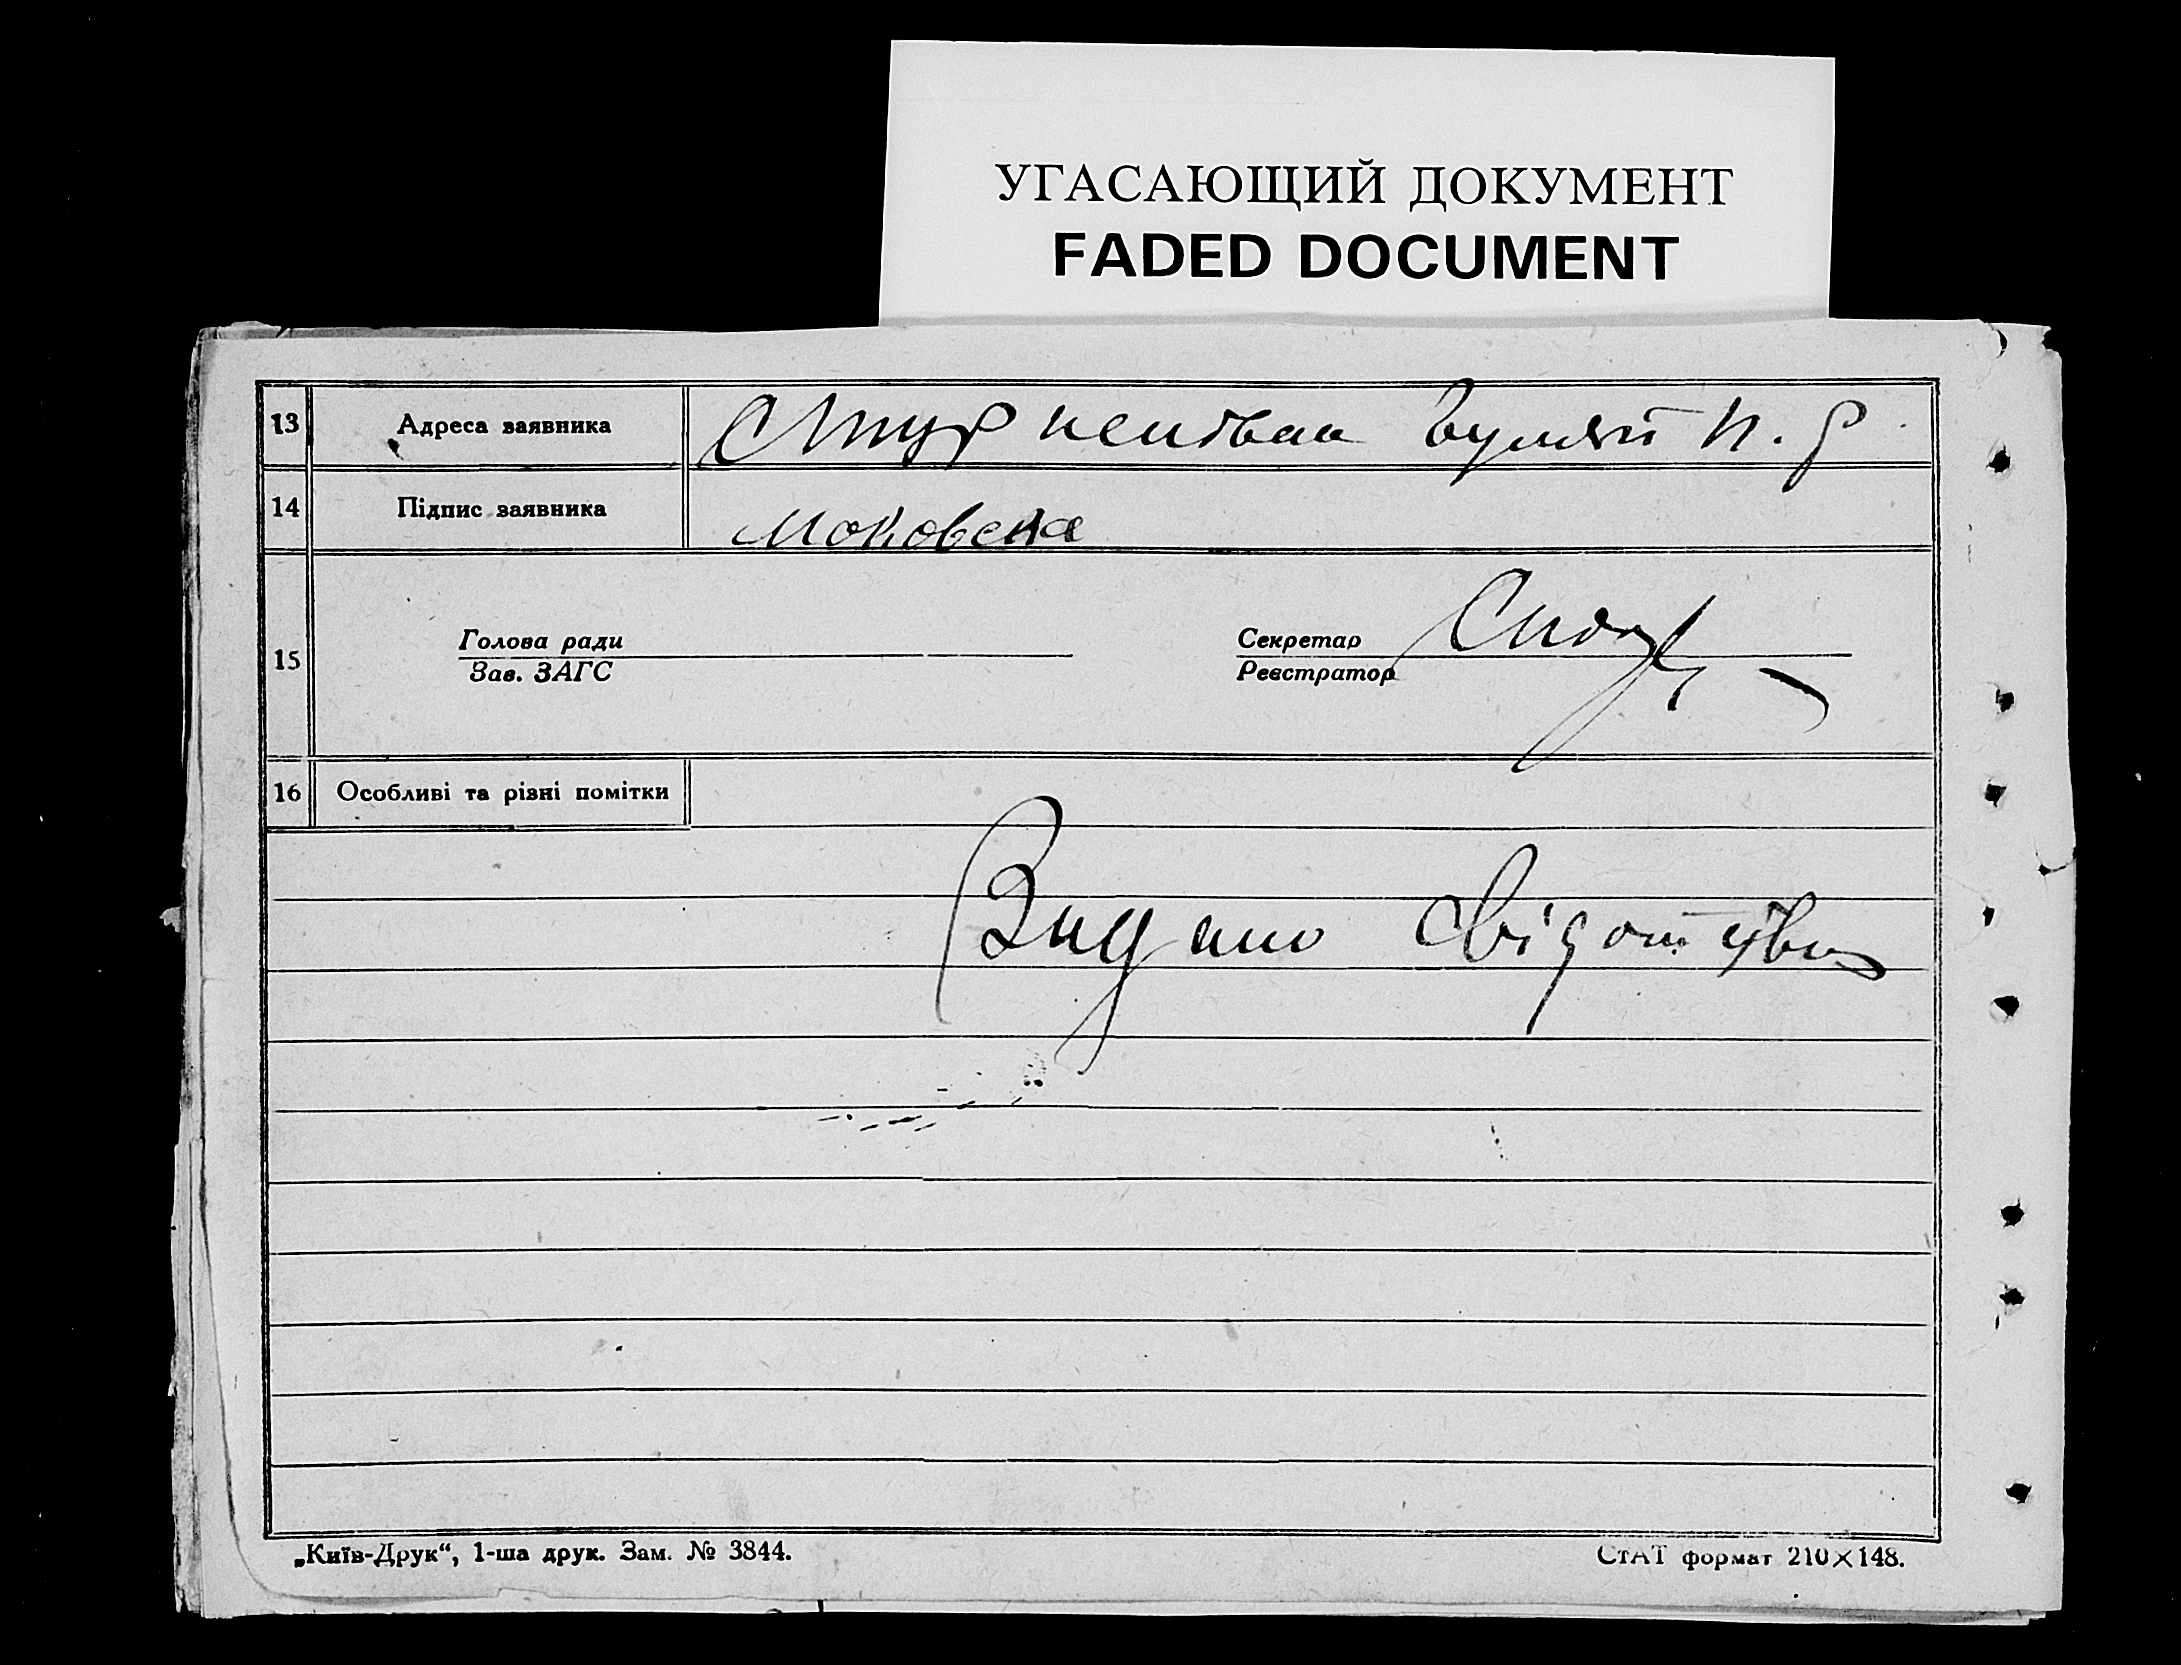 УГАСАЮЩИЙ ДОКУМЕНТ
FADED DOCUMENT
13 Адреса заявника П. Р.
14 Підпис заявника Моковска
15 Голова ради Секретар
Зав. ЗАГС Реєстратор
16 Особливі та різні помітки
Видано свідотство
„Київ-Друк“, 1-ша друк. Зам. № 3844. СтАТ формат 210×148.